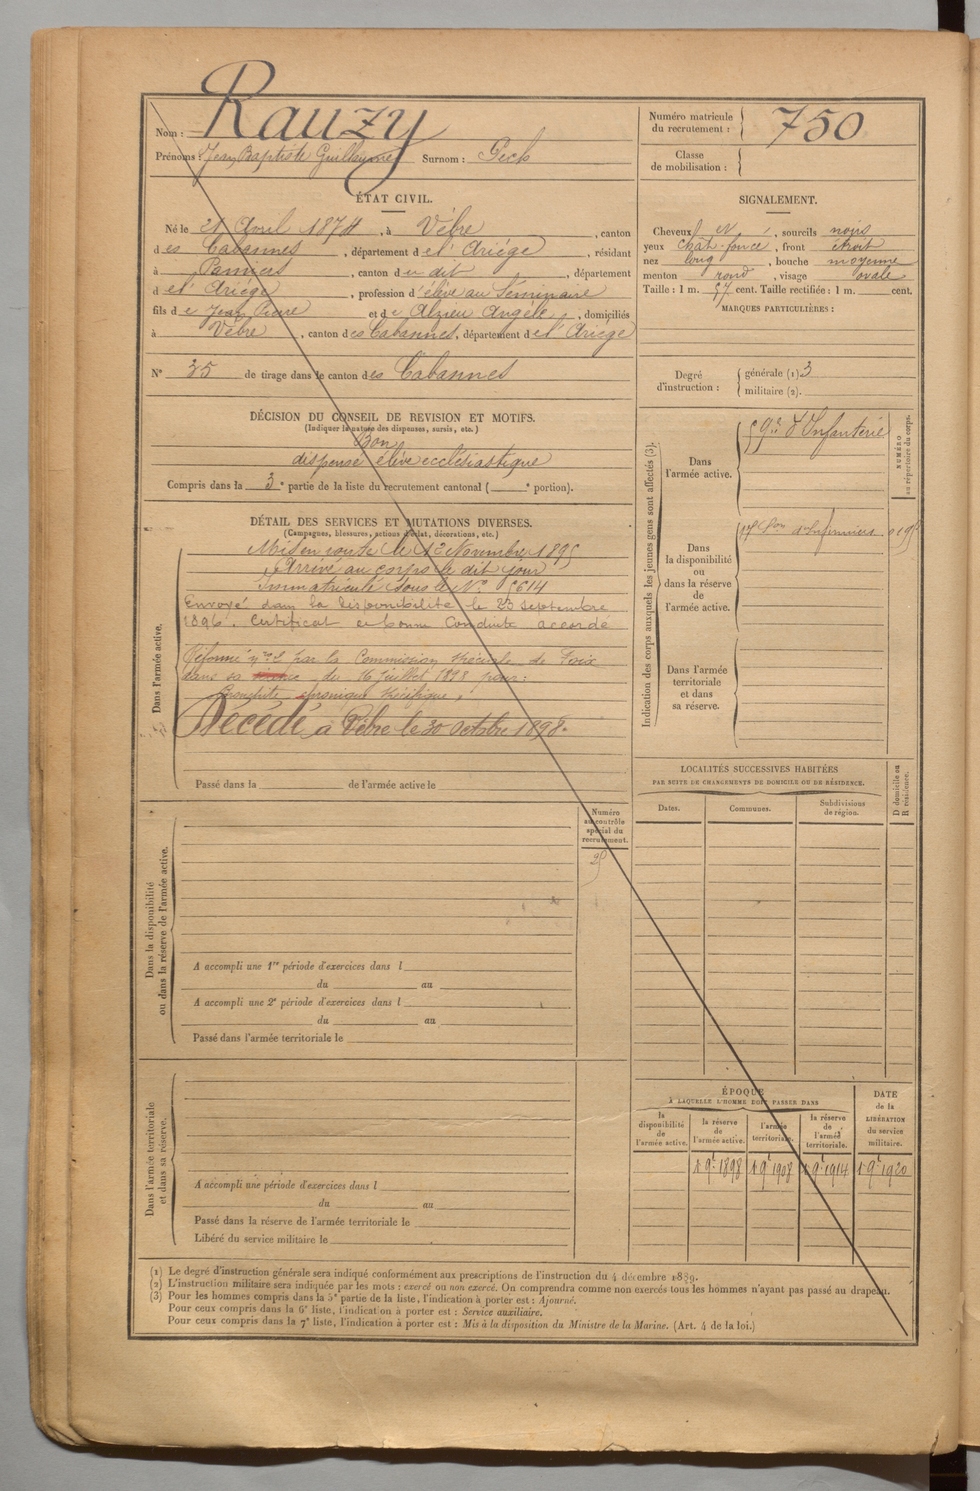 Nom : Rauzy
Prénoms Jean Baptiste Guillaume Surnom : Pech
Numéro matricule du recrutement : 750
Classe de mobilisation :
ÉTAT CIVIL.
Né le 21 Avril 1874, à Vèbre, canton
des Cabannes, département de l'Ariège, résidant
à Pamiers, canton du dit, département
de l'Ariége, profession d'élève au Séminaire
fils de Jean Pierre et de Alzieu Angèle, domiciliés
à Vèbre, canton des Cabannes, département de l'Ariège
N° 35 de tirage dans le canton des Cabannes
SIGNALEMENT.
Cheveux N, sourcils noirs
yeux chât. foncé, front étroit
nez long, bouche moyenne
menton rond, visage ovale
Taille : 1 m. 57 cent. Taille rectifiée : 1 m. cent.
MARQUES PARTICULIÈRES :
Degré d'instruction : générale (1) 3
militaire (2).
DÉCISION DU CONSEIL DE REVISION ET MOTIFS.
(Indiquer la nature des dispenses, sursis, etc.)
Bon
dispensé élève ecclésiastique
Compris dans la 3e partie de la liste du recrutement cantonal ( e portion).
DÉTAIL DES SERVICES ET MUTATIONS DIVERSES.
(Campagnes, blessures, actions d'éclat, décorations, etc.)
Dans l'armée active.
Mis en route le 12 Novembre 1895
Arrivé au corps le dit jour
Immatriculé sous le N° 5614
Envoyé dans la disponibilité le 23 septembre
1896. Certificat de bonne conduite accordé
Réformé n° 2 par la Commission spéciale de Foix
dans sa séance du 16 juillet 1898 pour :
Bronchite chronique spécifique.
Décédé à Vèbre le 30 octobre 1898.
Passé dans la de l'armée active le
Indication des corps auxquels les jeunes gens sont affectés (3).
Dans l'armée active.
59e d'Infanterie
NUMÉRO au répertoire du corps.
Dans la disponibilité ou dans la réserve de l'armée active.
17e Son d'Infirmiers
Dans l'armée territoriale et dans sa réserve.
LOCALITÉS SUCCESSIVES HABITÉES
PAR SUITE DE CHANGEMENTS DE DOMICILE OU DE RÉSIDENCE.
Dates.
Communes.
Subdivisions de région.
D domicile ou R résidence.
Numéro au contrôle spécial du recrutement.
Dans la disponibilité ou dans la réserve de l'armée active.
A accompli une 1re période d'exercices dans l
du au
A accompli une 2e période d'exercices dans l
du au
Passé dans l'armée territoriale le
Dans l'armée territoriale et dans sa réserve.
A accompli une période d'exercices dans l
du au
Passé dans la réserve de l'armée territoriale le
Libéré du service militaire le
ÉPOQUE
À LAQUELLE L'HOMME DOIT PASSER DANS
la disponibilité de l'armée active.
la réserve de l'armée active.
l'armée territoriale.
la réserve de l'armée territoriale.
DATE de la LIBÉRATION du service militaire.
1 9e 1898
1 9e 1908
1 9e 1914
1 9e 1920
(1) Le degré d'instruction générale sera indiqué conformément aux prescriptions de l'instruction du 4 décembre 1889.
(2) L'instruction militaire sera indiquée par les mots : exercé ou non exercé. On comprendra comme non exercés tous les hommes n'ayant pas passé au drapeau.
(3) Pour les hommes compris dans la 5e partie de la liste, l'indication à porter est : Ajourné.
Pour ceux compris dans la 6e liste, l'indication à porter est : Service auxiliaire.
Pour ceux compris dans la 7e liste, l'indication à porter est : Mis à la disposition du Ministre de la Marine. (Art. 4 de la loi.)